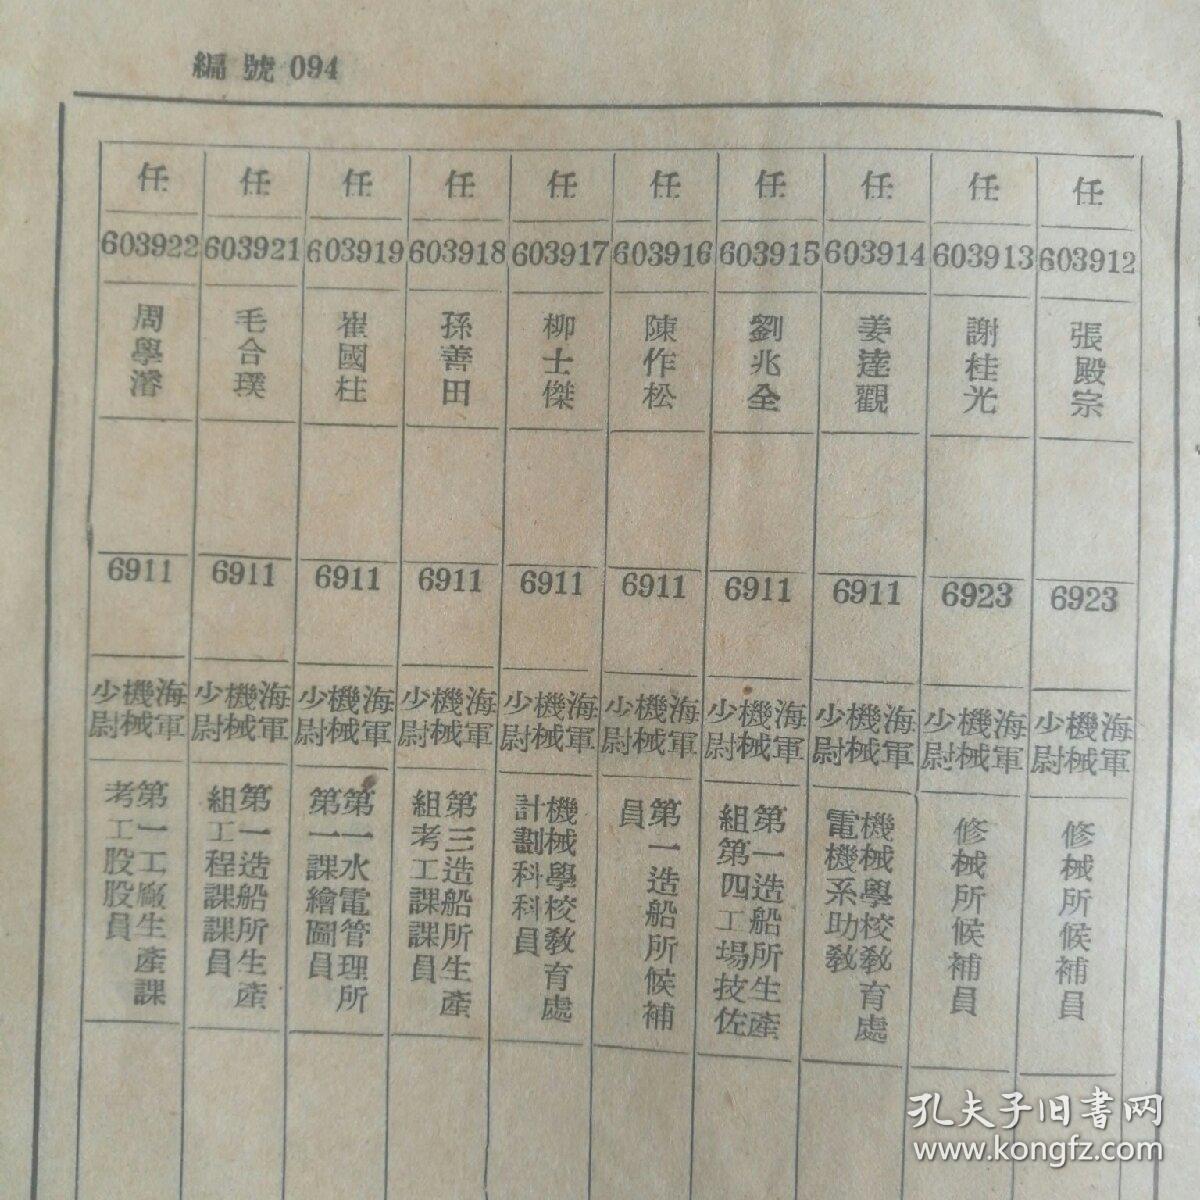 編號 094
任
603912
張殿宗
6923
海軍
機械
少尉
修械所候補員
任
603913
謝桂光
6923
海軍
機械
少尉
修械所候補員
任
603914
姜達觀
6911
海軍
機械
少尉
機械學校教育處
電機系助教
任
603915
劉兆全
6911
海軍
機械
少尉
第一造船所生產
組第四工場技佐
任
603916
陳作松
6911
海軍
機械
少尉
第一造船所候補
員
任
603917
柳士傑
6911
海軍
機械
少尉
機械學校教育處
計劃科科員
任
603918
孫善田
6911
海軍
機械
少尉
第三造船所生產
組考工課課員
任
603919
崔國柱
6911
海軍
機械
少尉
第一水電管理所
第一課繪圖員
任
603921
毛合璞
6911
海軍
機械
少尉
第一造船所生產
組工程課課員
任
603922
周學濬
6911
海軍
機械
少尉
第一工廠生產課
考工股股員
孔夫子旧书网
www.kongfz.com